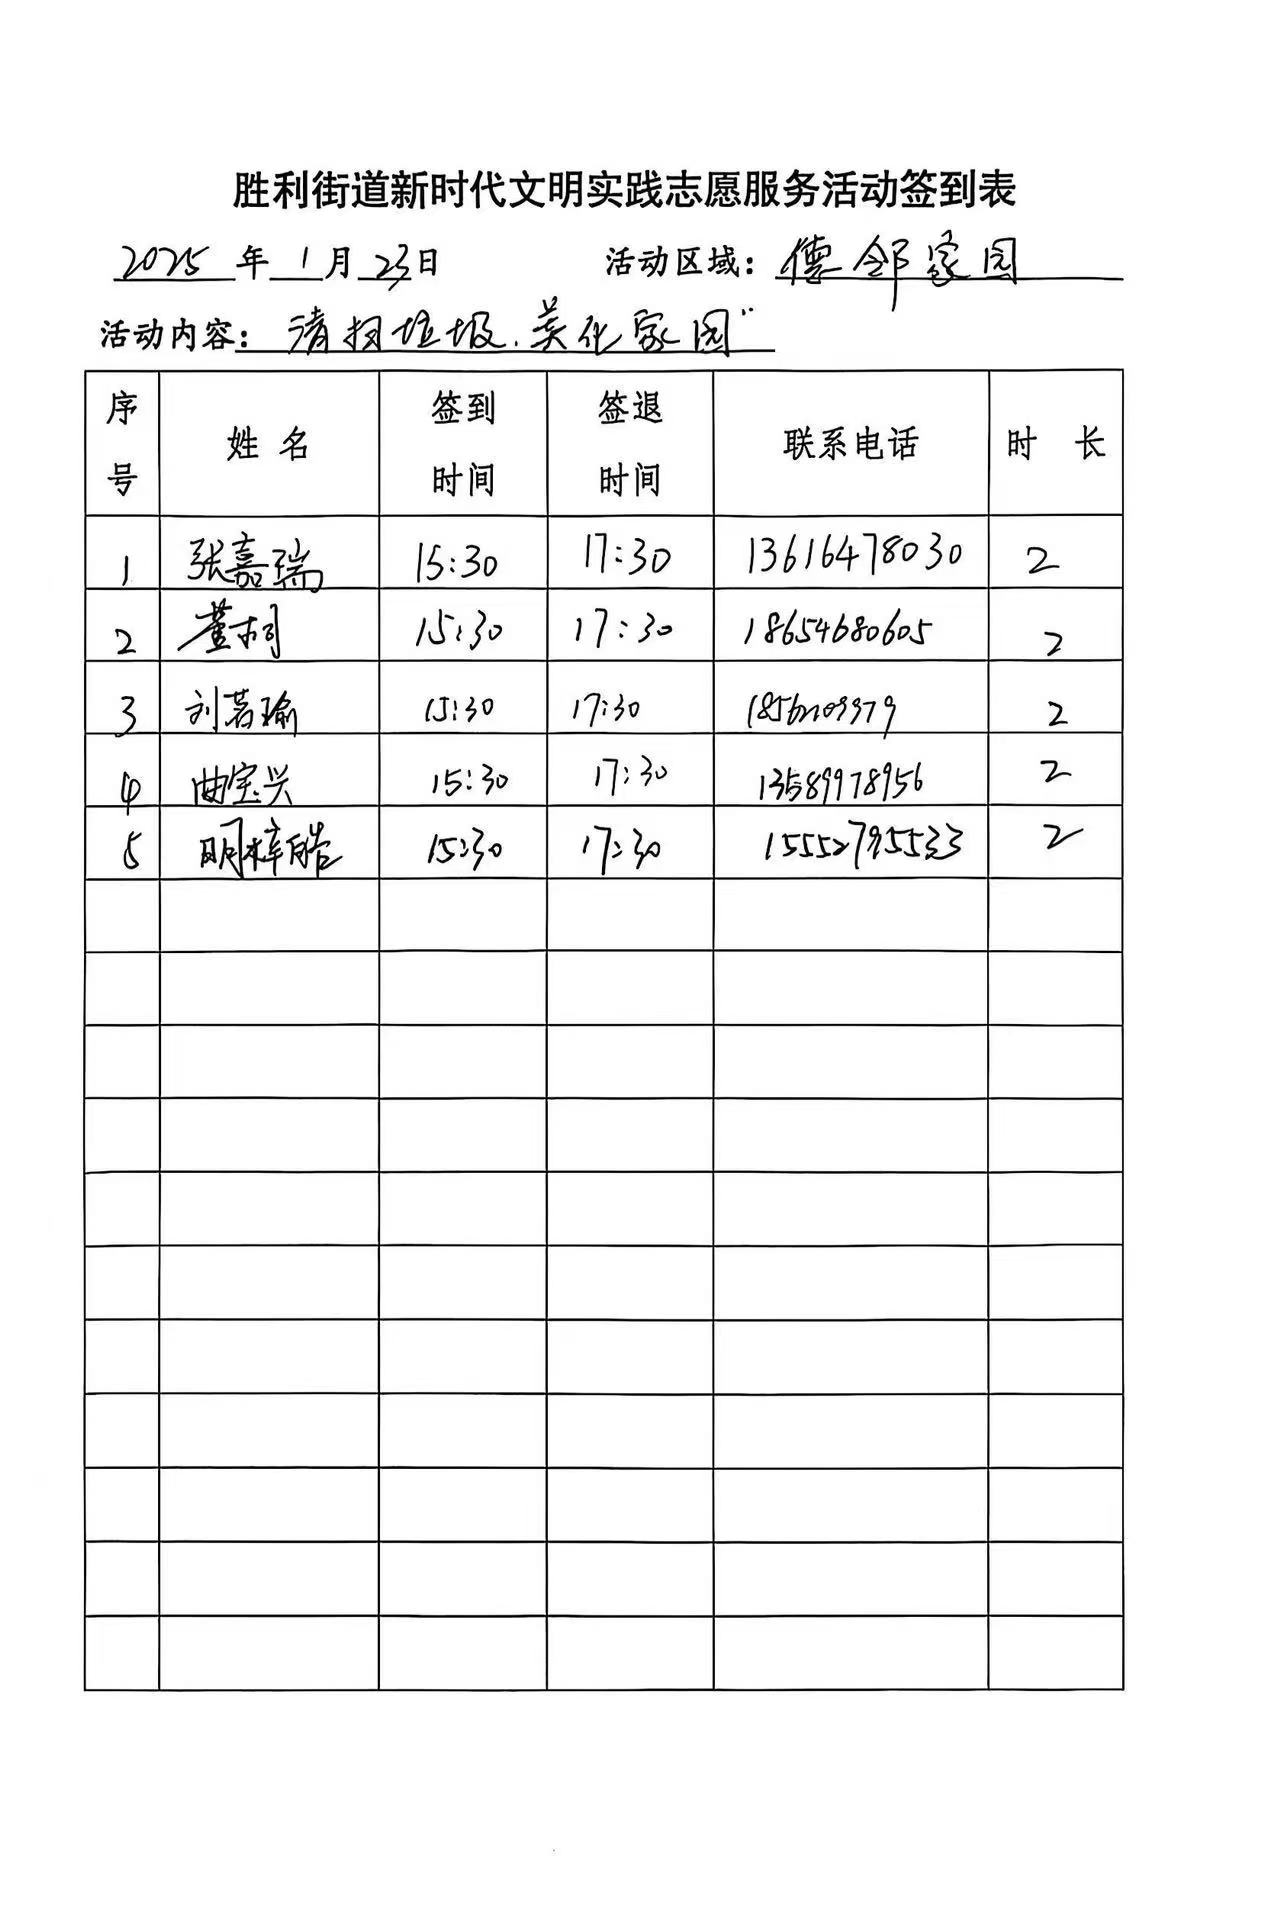 胜利街道新时代文明实践志愿服务活动签到表
2025 年 1 月 23 日 活动区域：德邻家园
活动内容：清扫垃圾.美化家园”
序号 姓名 签到时间 签退时间 联系电话 时长
1 张嘉瑞 15:30 17:30 13616478030 2
2 董 15:30 17:30 18654680605 2
3 刘若瑜 15:30 17:30 2
4 曲宝兴 15:30 17:30 13589978956 2
5 明梓皓 15:30 17:30 15552795533 2